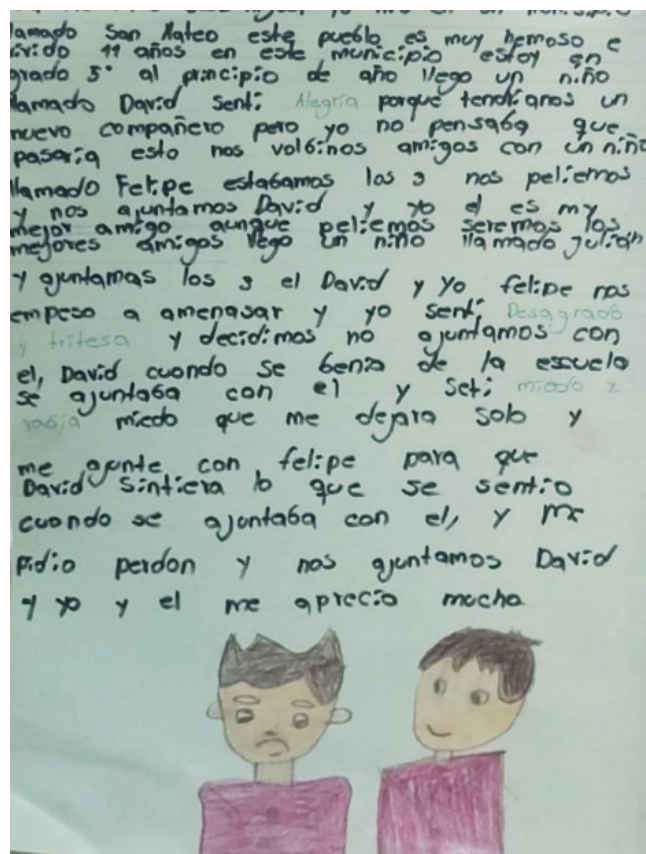 llamado San Mateo este pueblo es muy hemoso e
ivido 11 años en este municipio estoy en
grado 5° al principio de año llego un niño
llamado David senti Alegria porque tendrianos un
nuevo compañero pero yo no pensaba que
pasaria esto nos volbinos amigos con un niño
llamado Felipe estabamos los 3 nos peliemos
y nos ajuntamos David y yo el es my
mejor amigo aunque peliemos seremos los
mejores amigos llego un niño llamado Julián
y ajuntamas los 3 el David y Yo felipe nos
empeso a amenasar y yo senti Desagrado
y tritesa y decidimos no ajuntamos con
el, David cuondo se benia de la escuela
se ajuntaba con el y seti miedo y
rabia miedo que me dejara solo y
me ajunte con felipe para que
David sintiera lo que se sentio
cuondo se ajuntaba con el, y me
pidio perdon y nos ajuntamos David
y yo y el me aprecio mucho